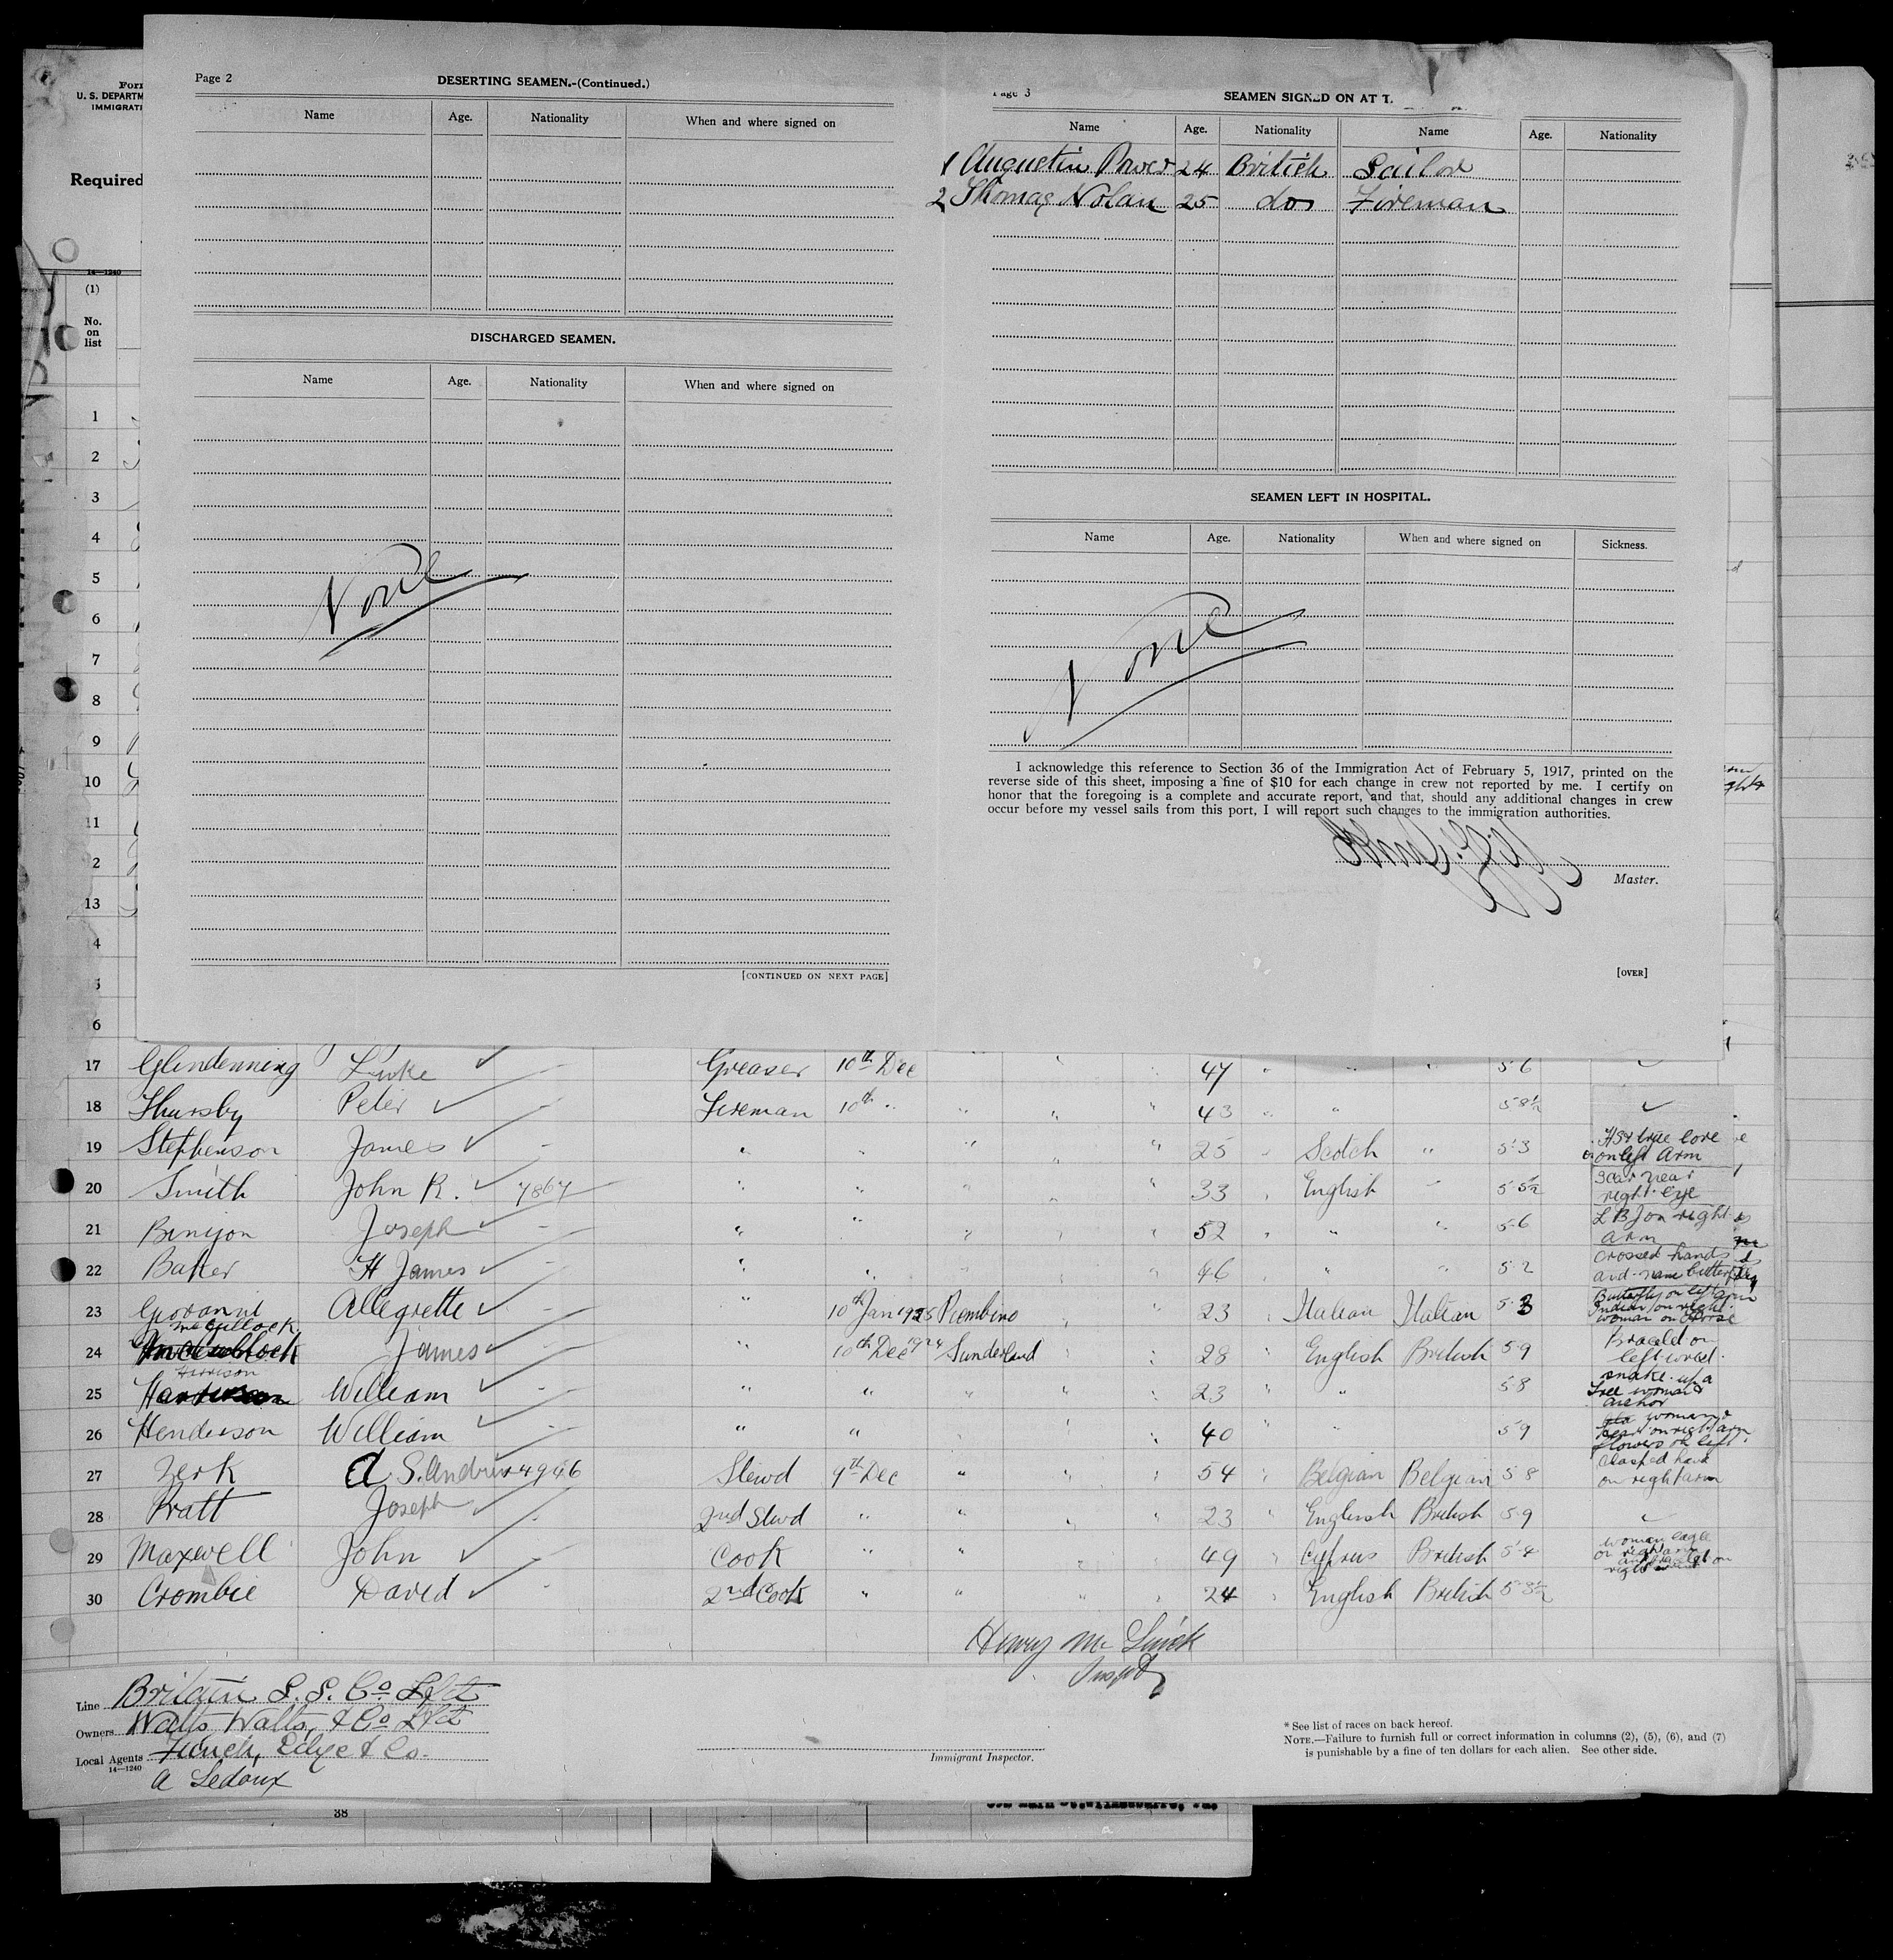 Form
U. S. DEPARTM
IMMIGRATI
Required
14—1240
(1)
No.
on
list
1
2
3
4
5
6
7
8
9
10
11
2
13
4
5
6
Page 2
DESERTING SEAMEN.-(Continued.)
Name Age. Nationality When and where signed on
DISCHARGED SEAMEN.
Name Age. Nationality When and where signed on
None
[CONTINUED ON NEXT PAGE]
Page 3
SEAMEN SIGNED ON AT T.
Name Age. Nationality Name Age. Nationality
1 Augustin Power 24 British Sailor
2 Thomas Nolan 25 do Fireman
SEAMEN LEFT IN HOSPITAL.
Name Age. Nationality When and where signed on Sickness.
None
I acknowledge this reference to Section 36 of the Immigration Act of February 5, 1917, printed on the
reverse side of this sheet, imposing a fine of $10 for each change in crew not reported by me. I certify on
honor that the foregoing is a complete and accurate report, and that, should any additional changes in crew
occur before my vessel sails from this port, I will report such changes to the immigration authorities.
Master.
[OVER]
17 Glendenning Luke Greaser 10th Dec " " " 47 " " " 5 6
18 Thursby Peter Fireman 10th " " " " 43 " " 5 8½
19 Stephenson James " " " " " 25 " Scotch " 5 3 true love
on left arm
20 Smith John R. 7867 " " " " " 33 " English " 5 5½ Scar near
right eye
21 Binyon Joseph " " " " " 52 " " " 5 6 L B J on right
arm
22 Baker H James " " " " " 46 " " " 5 2 crossed hands
and name butterfly
23 Giovanni Allegrette " 10th Jan 1925 Piombino " " 23 " Italian Italian 5 3 Butterfly on left arm
Indian on right
woman on horse
McCullock
24 James " 10th Dec 1924 Sunderland " " 28 " English British 5 9 Bracelet on
left wrist
Harrison
25 William " " " " " 23 " " 5 8 snake up a
tree woman &
anchor
26 Henderson William " " " " 40 " " 5 9 woman &
heart on right arm
flowers on left
27 Zerk A S. Andrew 4946 Stewd 9th Dec " " " 54 " Belgian Belgian 5 8 Clasped hand
on right arm
28 Pratt Joseph 2nd Stewd " " " " 23 " English British 5 9
29 Maxwell John Cook " " " " 49 " Cyprus British 5 4 woman eagle
on right arm
30 Crombie David 2nd Cook " " " " 24 " English British 5 3½
Henry Mc
Line Britain S. S. Co. Ltd
Owners Watts Watts, & Co Ltd
Local Agents Funch, Edye & Co.
14—1240
A Ledoux
Immigrant Inspector.
* See list of races on back hereof.
NOTE.—Failure to furnish full or correct information in columns (2), (5), (6), and (7)
is punishable by a fine of ten dollars for each alien. See other side.
38